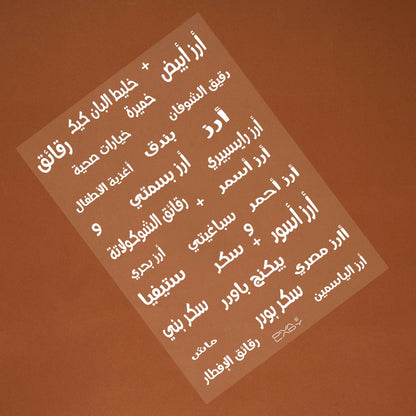 أرز أبيض + خليط البان كيك رقائق
رقيق الشوفان خميرة خيارات صحية
أرز بندق أغذية الأطفال
أرز رايسبيري أرز بسمتي و
أرز أسمر + رقائق الشوكولاتة
أرز أحمر سباغيتي أرز بحري
أرز أسود و + سكر ستيفيا
أرز مصري بيكنج باودر سكر بني
أرز الياسمين سكر بودر ماش
رقائق الإفطار